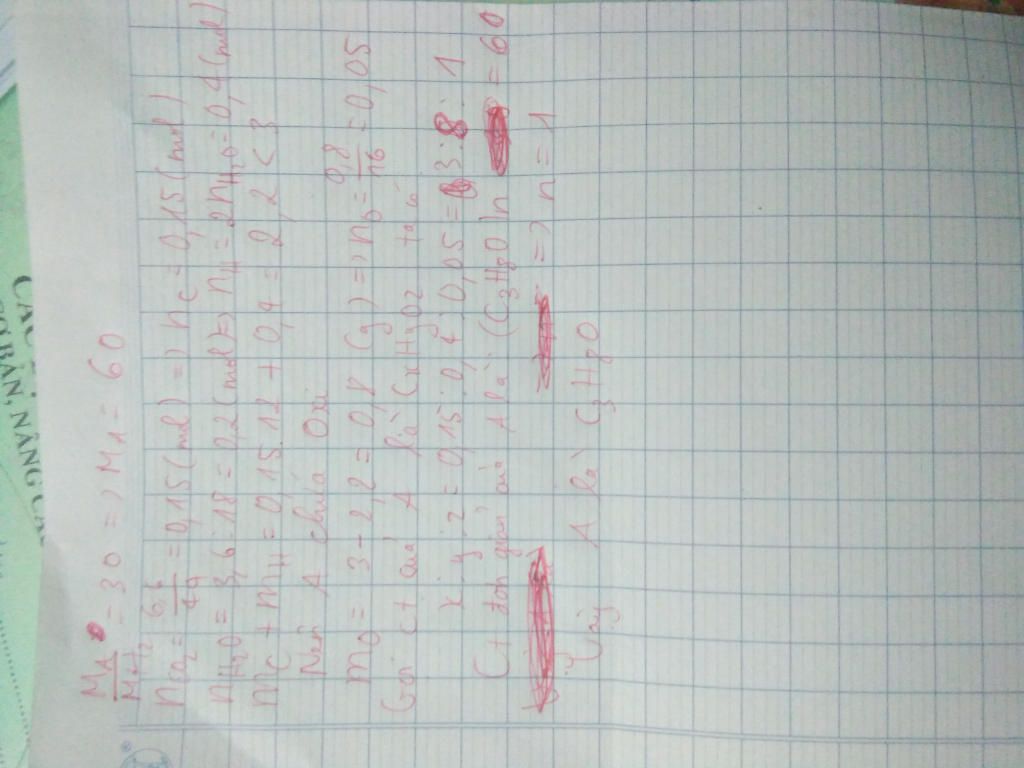 CÁC
CƠ BẢN, NÂNG CA
M_A / M_H2 = 30 => M_A = 60
n_CO2 = 6,6/44 = 0,15 (mol) => n_C = 0,15 (mol)
n_H2O = 3,6 : 18 = 0,2 (mol) => n_H = 2n_H2O = 0,4 (mol)
m_C + m_H = 0,15.12 + 0,4 = 2,2 < 3
Nên A chứa Oxi
m_O = 3 - 2,2 = 0,8 (g) => n_O = 0,8/16 = 0,05
Gọi ct của A là CxHyOz ta có
x : y : z = 0,15 : 0,4 : 0,05 = 3 : 8 : 1
Ct đơn giản của A là (C3H8O)n = 60
=> n = 1
Vậy A là C3H8O